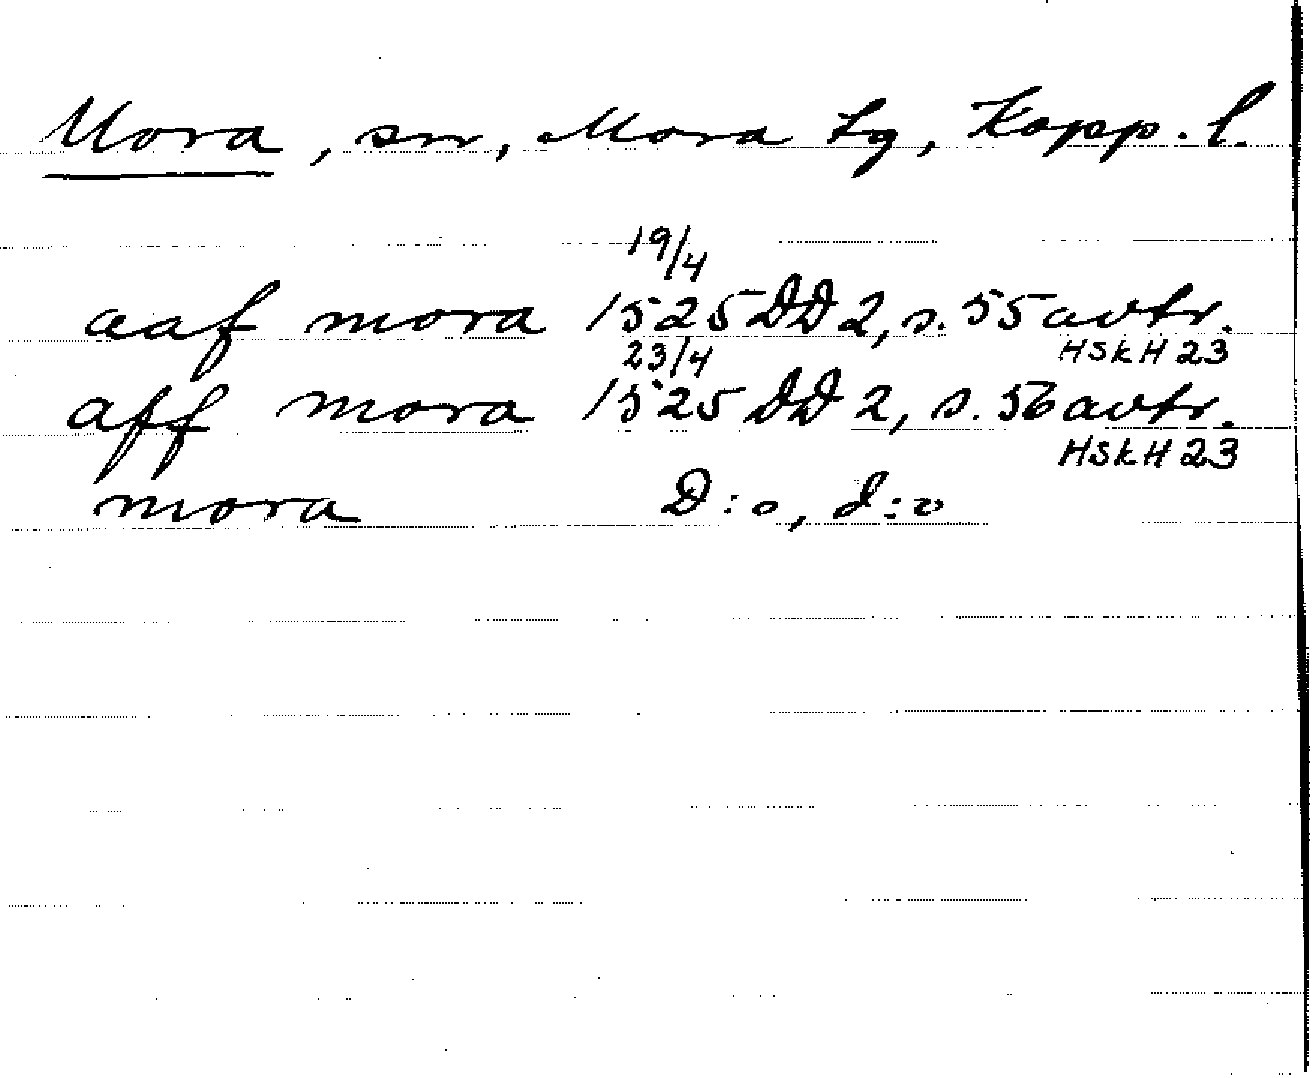 Mora, sn, Mora tg, Kopp. l.
19/4
aaf mora 1525 DD 2, s. 55 avtr.
23/4 HSkH 23
aff mora 1525 DD 2, s. 56 avtr.
HSkH 23
mora D:o, d:o